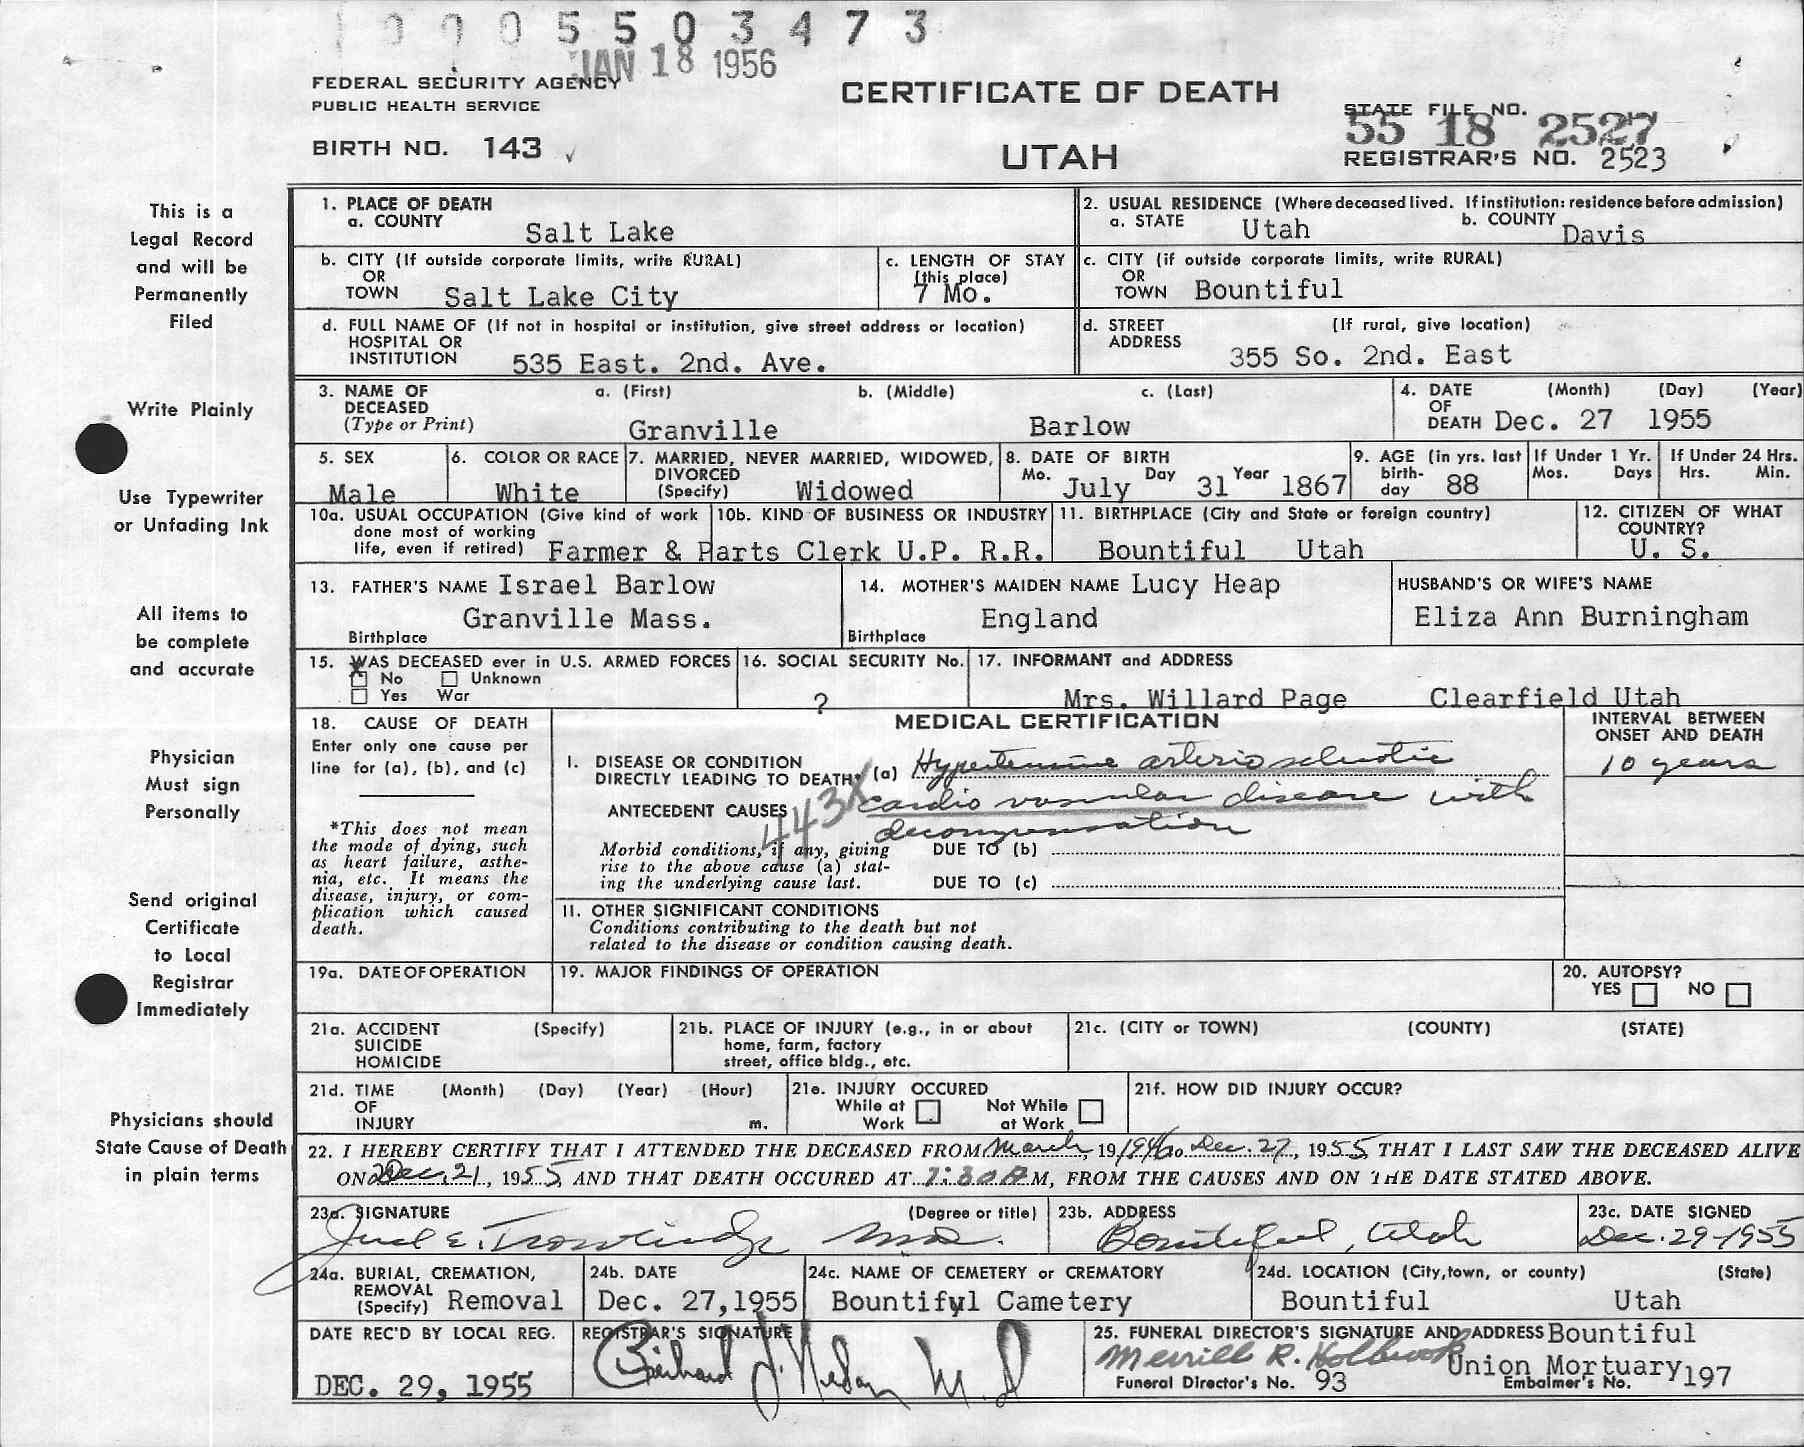 0 0 0 5 5 0 3 4 7 3
JAN 18 1956
FEDERAL SECURITY AGENCY
PUBLIC HEALTH SERVICE
BIRTH NO. 143
CERTIFICATE OF DEATH
UTAH
STATE FILE NO.
55 18 2527
REGISTRAR'S NO. 2523
This is a
Legal Record
and will be
Permanently
Filed
Write Plainly
Use Typewriter
or Unfading Ink
All items to
be complete
and accurate
Physician
Must sign
Personally
Send original
Certificate
to Local
Registrar
Immediately
Physicians should
State Cause of Death
in plain terms
1. PLACE OF DEATH
a. COUNTY Salt Lake
2. USUAL RESIDENCE (Where deceased lived. If institution: residence before admission)
a. STATE Utah b. COUNTY Davis
b. CITY (If outside corporate limits, write RURAL)
OR
TOWN Salt Lake City
c. LENGTH OF STAY
(this place)
7 Mo.
c. CITY (if outside corporate limits, write RURAL)
OR
TOWN Bountiful
d. FULL NAME OF (If not in hospital or institution, give street address or location)
HOSPITAL OR
INSTITUTION 535 East. 2nd. Ave.
d. STREET (If rural, give location)
ADDRESS 355 So. 2nd. East
3. NAME OF a. (First) b. (Middle) c. (Last)
DECEASED
(Type or Print) Granville Barlow
4. DATE (Month) (Day) (Year)
OF
DEATH Dec. 27 1955
5. SEX
Male
6. COLOR OR RACE
White
7. MARRIED, NEVER MARRIED, WIDOWED,
DIVORCED
(Specify) Widowed
8. DATE OF BIRTH
Mo. July Day 31 Year 1867
9. AGE (in yrs. last
birth-
day 88
If Under 1 Yr.
Mos. Days
If Under 24 Hrs.
Hrs. Min.
10a. USUAL OCCUPATION (Give kind of work
done most of working
life, even if retired) Farmer & Parts Clerk U.P. R.R.
10b. KIND OF BUSINESS OR INDUSTRY
11. BIRTHPLACE (City and State or foreign country)
Bountiful Utah
12. CITIZEN OF WHAT
COUNTRY?
U. S.
13. FATHER'S NAME Israel Barlow
Granville Mass.
Birthplace
14. MOTHER'S MAIDEN NAME Lucy Heap
England
Birthplace
HUSBAND'S OR WIFE'S NAME
Eliza Ann Burningham
15. WAS DECEASED ever in U.S. ARMED FORCES
X No Unknown
Yes War
16. SOCIAL SECURITY No.
?
17. INFORMANT and ADDRESS
Mrs. Willard Page Clearfield Utah
18. CAUSE OF DEATH
Enter only one cause per
line for (a), (b), and (c)
*This does not mean
the mode of dying, such
as heart failure, asthe-
nia, etc. It means the
disease, injury, or com-
plication which caused
death.
MEDICAL CERTIFICATION
INTERVAL BETWEEN
ONSET AND DEATH
I. DISEASE OR CONDITION
DIRECTLY LEADING TO DEATH* (a) Hypertensive arteriosclerotic
10 years
ANTECEDENT CAUSES cardio vascular disease with
decompensation
443X
Morbid conditions, if any, giving
rise to the above cause (a) stat-
ing the underlying cause last.
DUE TO (b)
DUE TO (c)
II. OTHER SIGNIFICANT CONDITIONS
Conditions contributing to the death but not
related to the disease or condition causing death.
19a. DATE OF OPERATION
19. MAJOR FINDINGS OF OPERATION
20. AUTOPSY?
YES NO
21a. ACCIDENT (Specify)
SUICIDE
HOMICIDE
21b. PLACE OF INJURY (e.g., in or about
home, farm, factory
street, office bldg., etc.
21c. (CITY or TOWN) (COUNTY) (STATE)
21d. TIME (Month) (Day) (Year) (Hour)
OF
INJURY m.
21e. INJURY OCCURED
While at Work
Not While at Work
21f. HOW DID INJURY OCCUR?
22. I HEREBY CERTIFY THAT I ATTENDED THE DECEASED FROM March, 19 1946 to Dec. 27, 1955 THAT I LAST SAW THE DECEASED ALIVE
ON Dec. 21, 1955, AND THAT DEATH OCCURED AT 7:30 A M, FROM THE CAUSES AND ON THE DATE STATED ABOVE.
23a. SIGNATURE (Degree or title)
E. Trowbridge M.D.
23b. ADDRESS
Bountiful, Utah
23c. DATE SIGNED
Dec. 29-1955
24a. BURIAL, CREMATION,
REMOVAL
(Specify) Removal
24b. DATE
Dec. 27,1955
24c. NAME OF CEMETERY or CREMATORY
Bountifyl Cametery
24d. LOCATION (City,town, or county) (State)
Bountiful Utah
DATE REC'D BY LOCAL REG.
DEC. 29, 1955
REGISTRAR'S SIGNATURE
M D
25. FUNERAL DIRECTOR'S SIGNATURE AND ADDRESS Bountiful
Merrill R. Holbrook Union Mortuary
Funeral Director's No. 93 Embalmer's No. 197